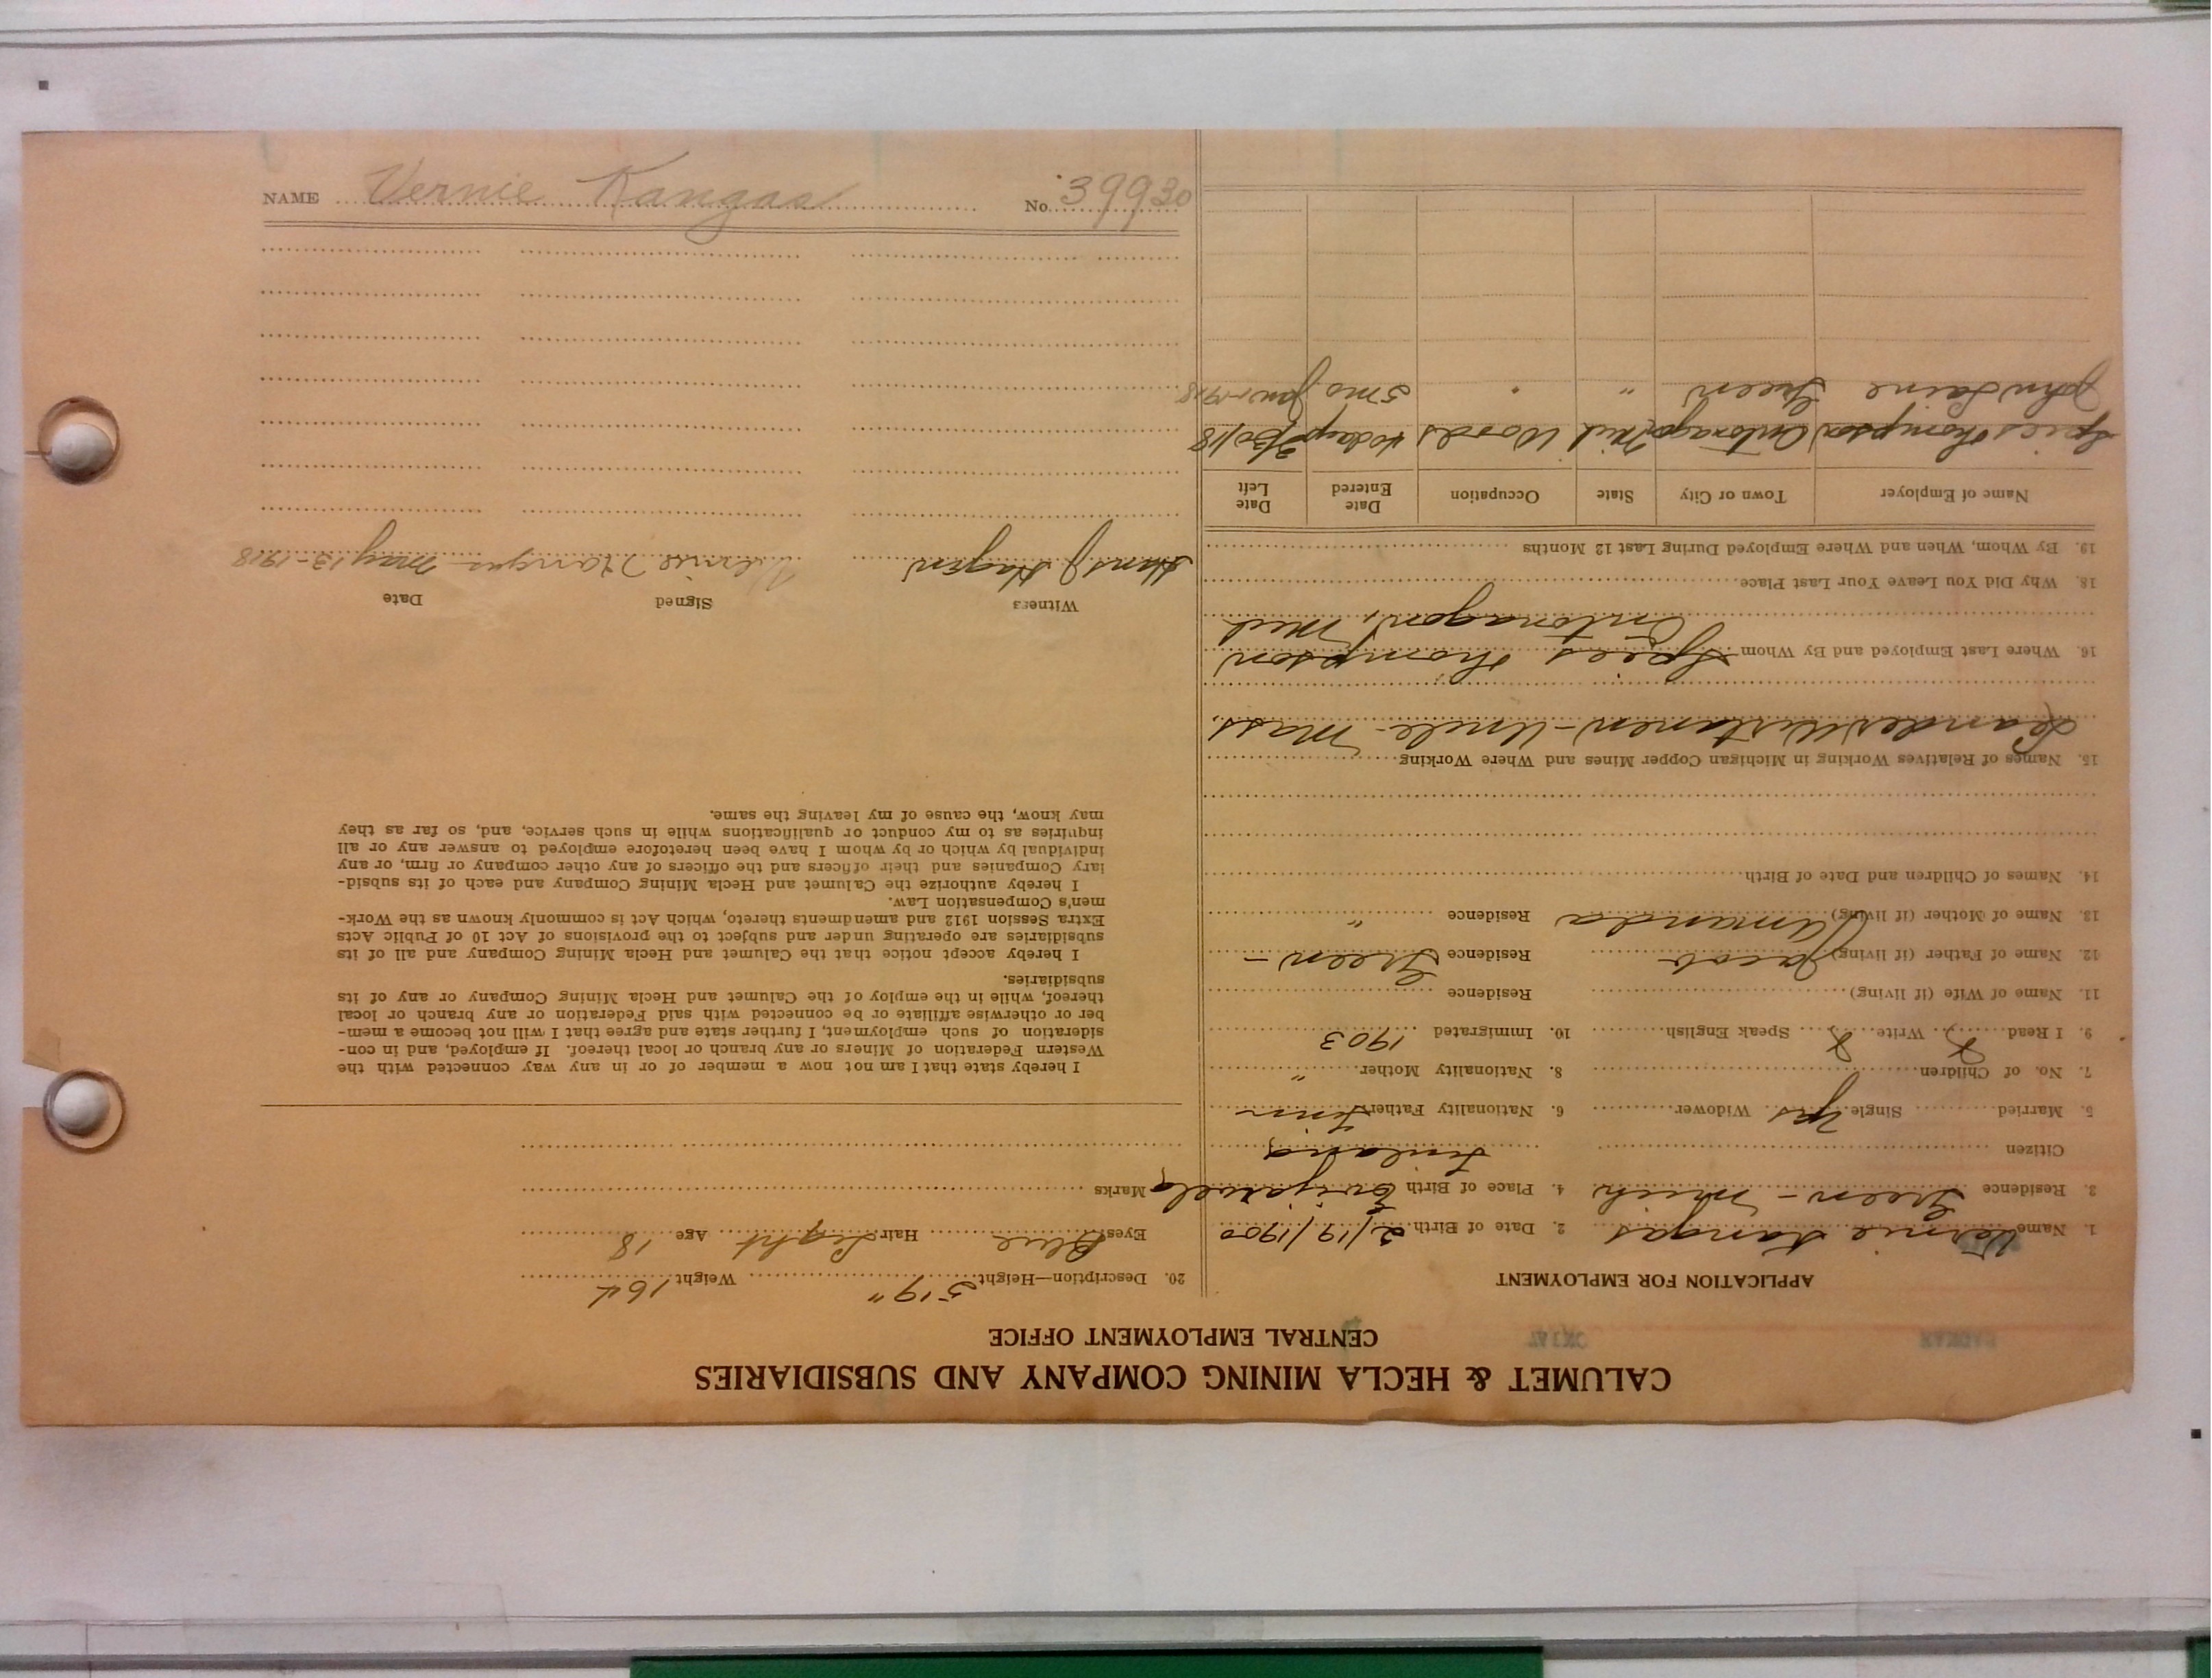 CALUMET & HECLA MINING COMPANY AND SUBSIDIARIES
CENTRAL EMPLOYMENT OFFICE
APPLICATION FOR EMPLOYMENT
1. Name Vernie Kangas 2. Date of Birth 2/19/1900
3. Residence Green - Mich 4. Place of Birth Evijarvela
Citizen Finland
5. Married Single Yes Widower 6. Nationality Father Finn
7. No. of Children 8. Nationality Mother "
9. I Read Write Speak English 10. Immigrated 1903
11. Name of Wife (if living) Residence
12. Name of Father (if living) Jacob Residence Green -
13. Name of Mother (if living) Amanda Residence "
14. Names of Children and Date of Birth
15. Names of Relatives Working in Michigan Copper Mines and Where Working
- Uncle - Mass
16. Where Last Employed and By Whom Spies Thompson
Ontonagon, Mich
18. Why Did You Leave Your Last Place
19. By Whom, When and Where Employed During Last 12 Months
Name of Employer Town or City State Occupation Date Entered Date Left
Spies Thompson Ontonagon Mich Woods 40 days 3/30/18
John Laine Green " " 5 mo Jan 1-1918
20. Description—Height 5'9" Weight 164
Eyes Blue Hair Light Age 18
Marks
I hereby state that I am not now a member of or in any way connected with the
Western Federation of Miners or any branch or local thereof. If employed, and in con-
sideration of such employment, I further state and agree that I will not become a mem-
ber or otherwise affiliate or be connected with said Federation or any branch or local
thereof, while in the employ of the Calumet and Hecla Mining Company or any of its
subsidiaries.
I hereby accept notice that the Calumet and Hecla Mining Company and all of its
subsidiaries are operating under and subject to the provisions of Act 10 of Public Acts
Extra Session 1912 and amendments thereto, which Act is commonly known as the Work-
men's Compensation Law.
I hereby authorize the Calumet and Hecla Mining Company and each of its subsid-
iary Companies and their officers and the officers of any other company or firm, or any
individual by which or by whom I have been heretofore employed to answer any or all
inquiries as to my conduct or qualifications while in such service, and, so far as they
may know, the cause of my leaving the same.
Witness Signed Date
Hans J Hagen Vernie Kangas May 13-1918
NAME Vernie Kangas No. 39930